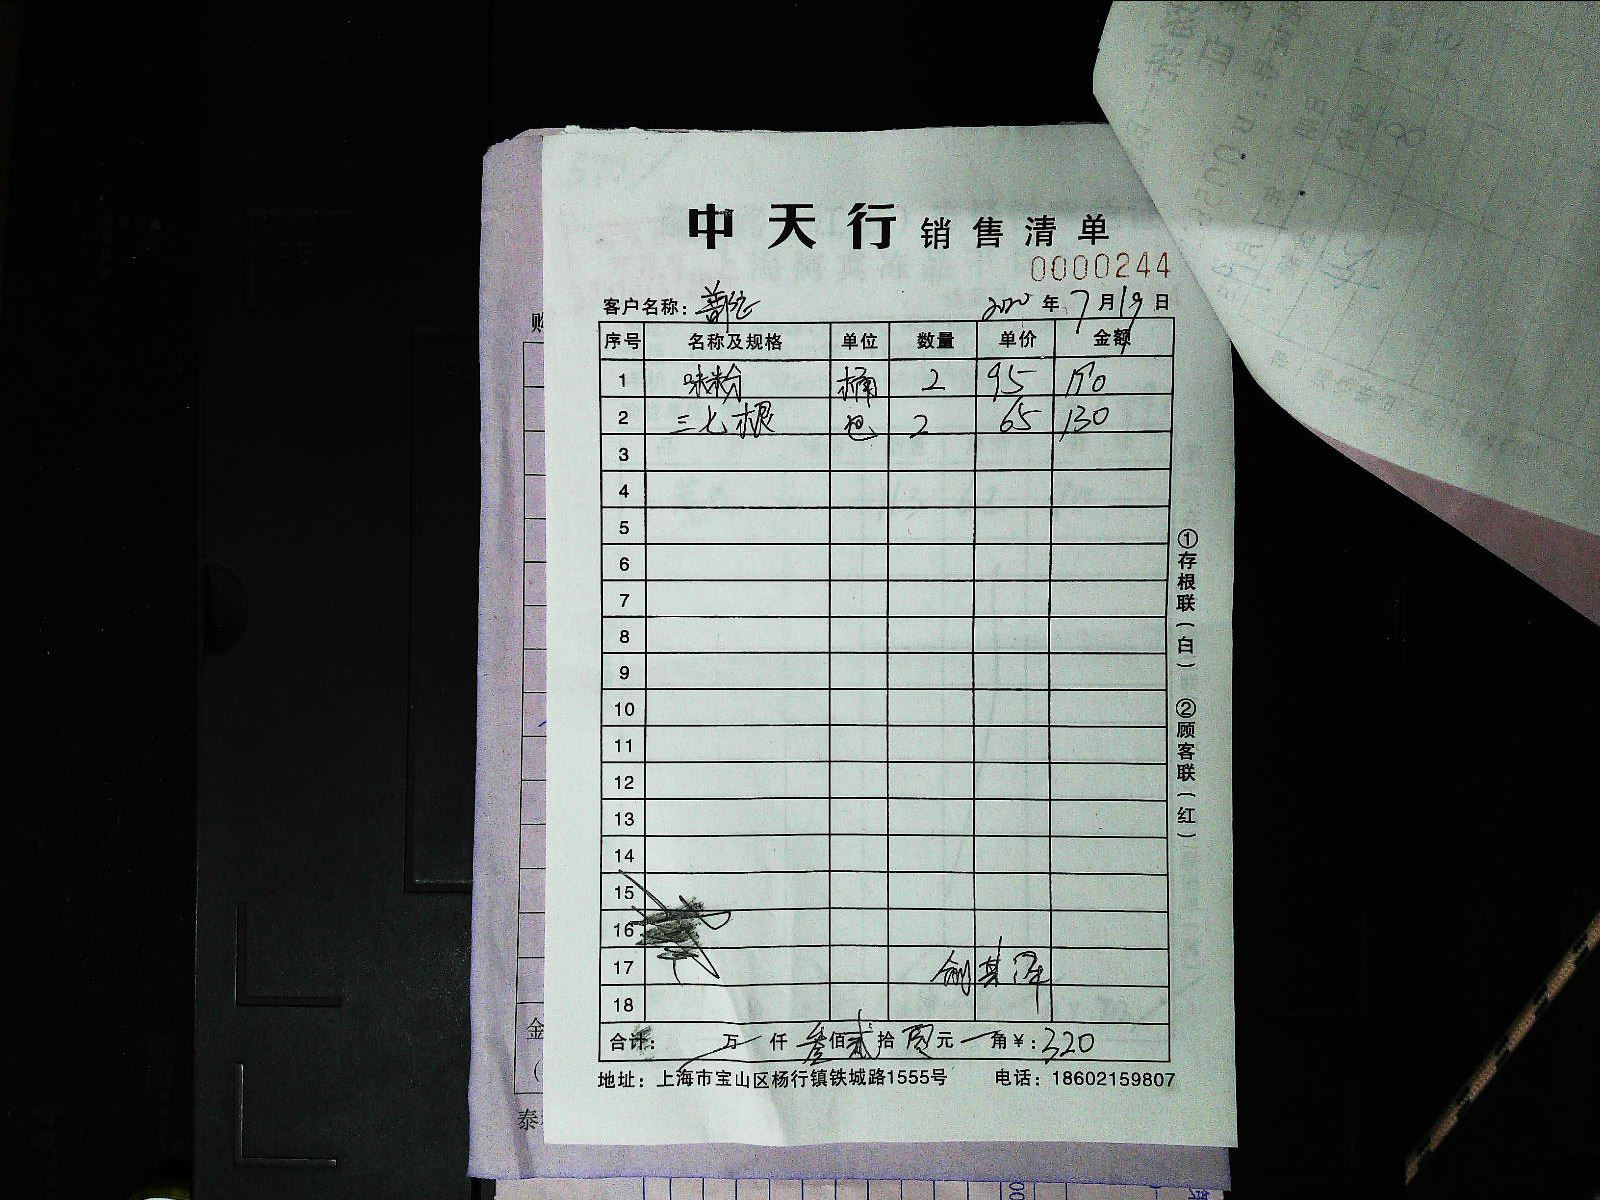 中天行 销售清单
0000244
客户名称: 年 7 月 19 日
序号 名称及规格 单位 数量 单价 金额
1 味粉 桶 2 95 190
2 三七根 包 2 65 130
3
4
5
6
7
8
9
10
11
12
13
14
15
16
17
18
合计: 万 仟 叁佰贰拾 元 角 ¥: 320
地址: 上海市宝山区杨行镇铁城路1555号 电话: 18602159807
①存根联(白) ②顾客联(红)